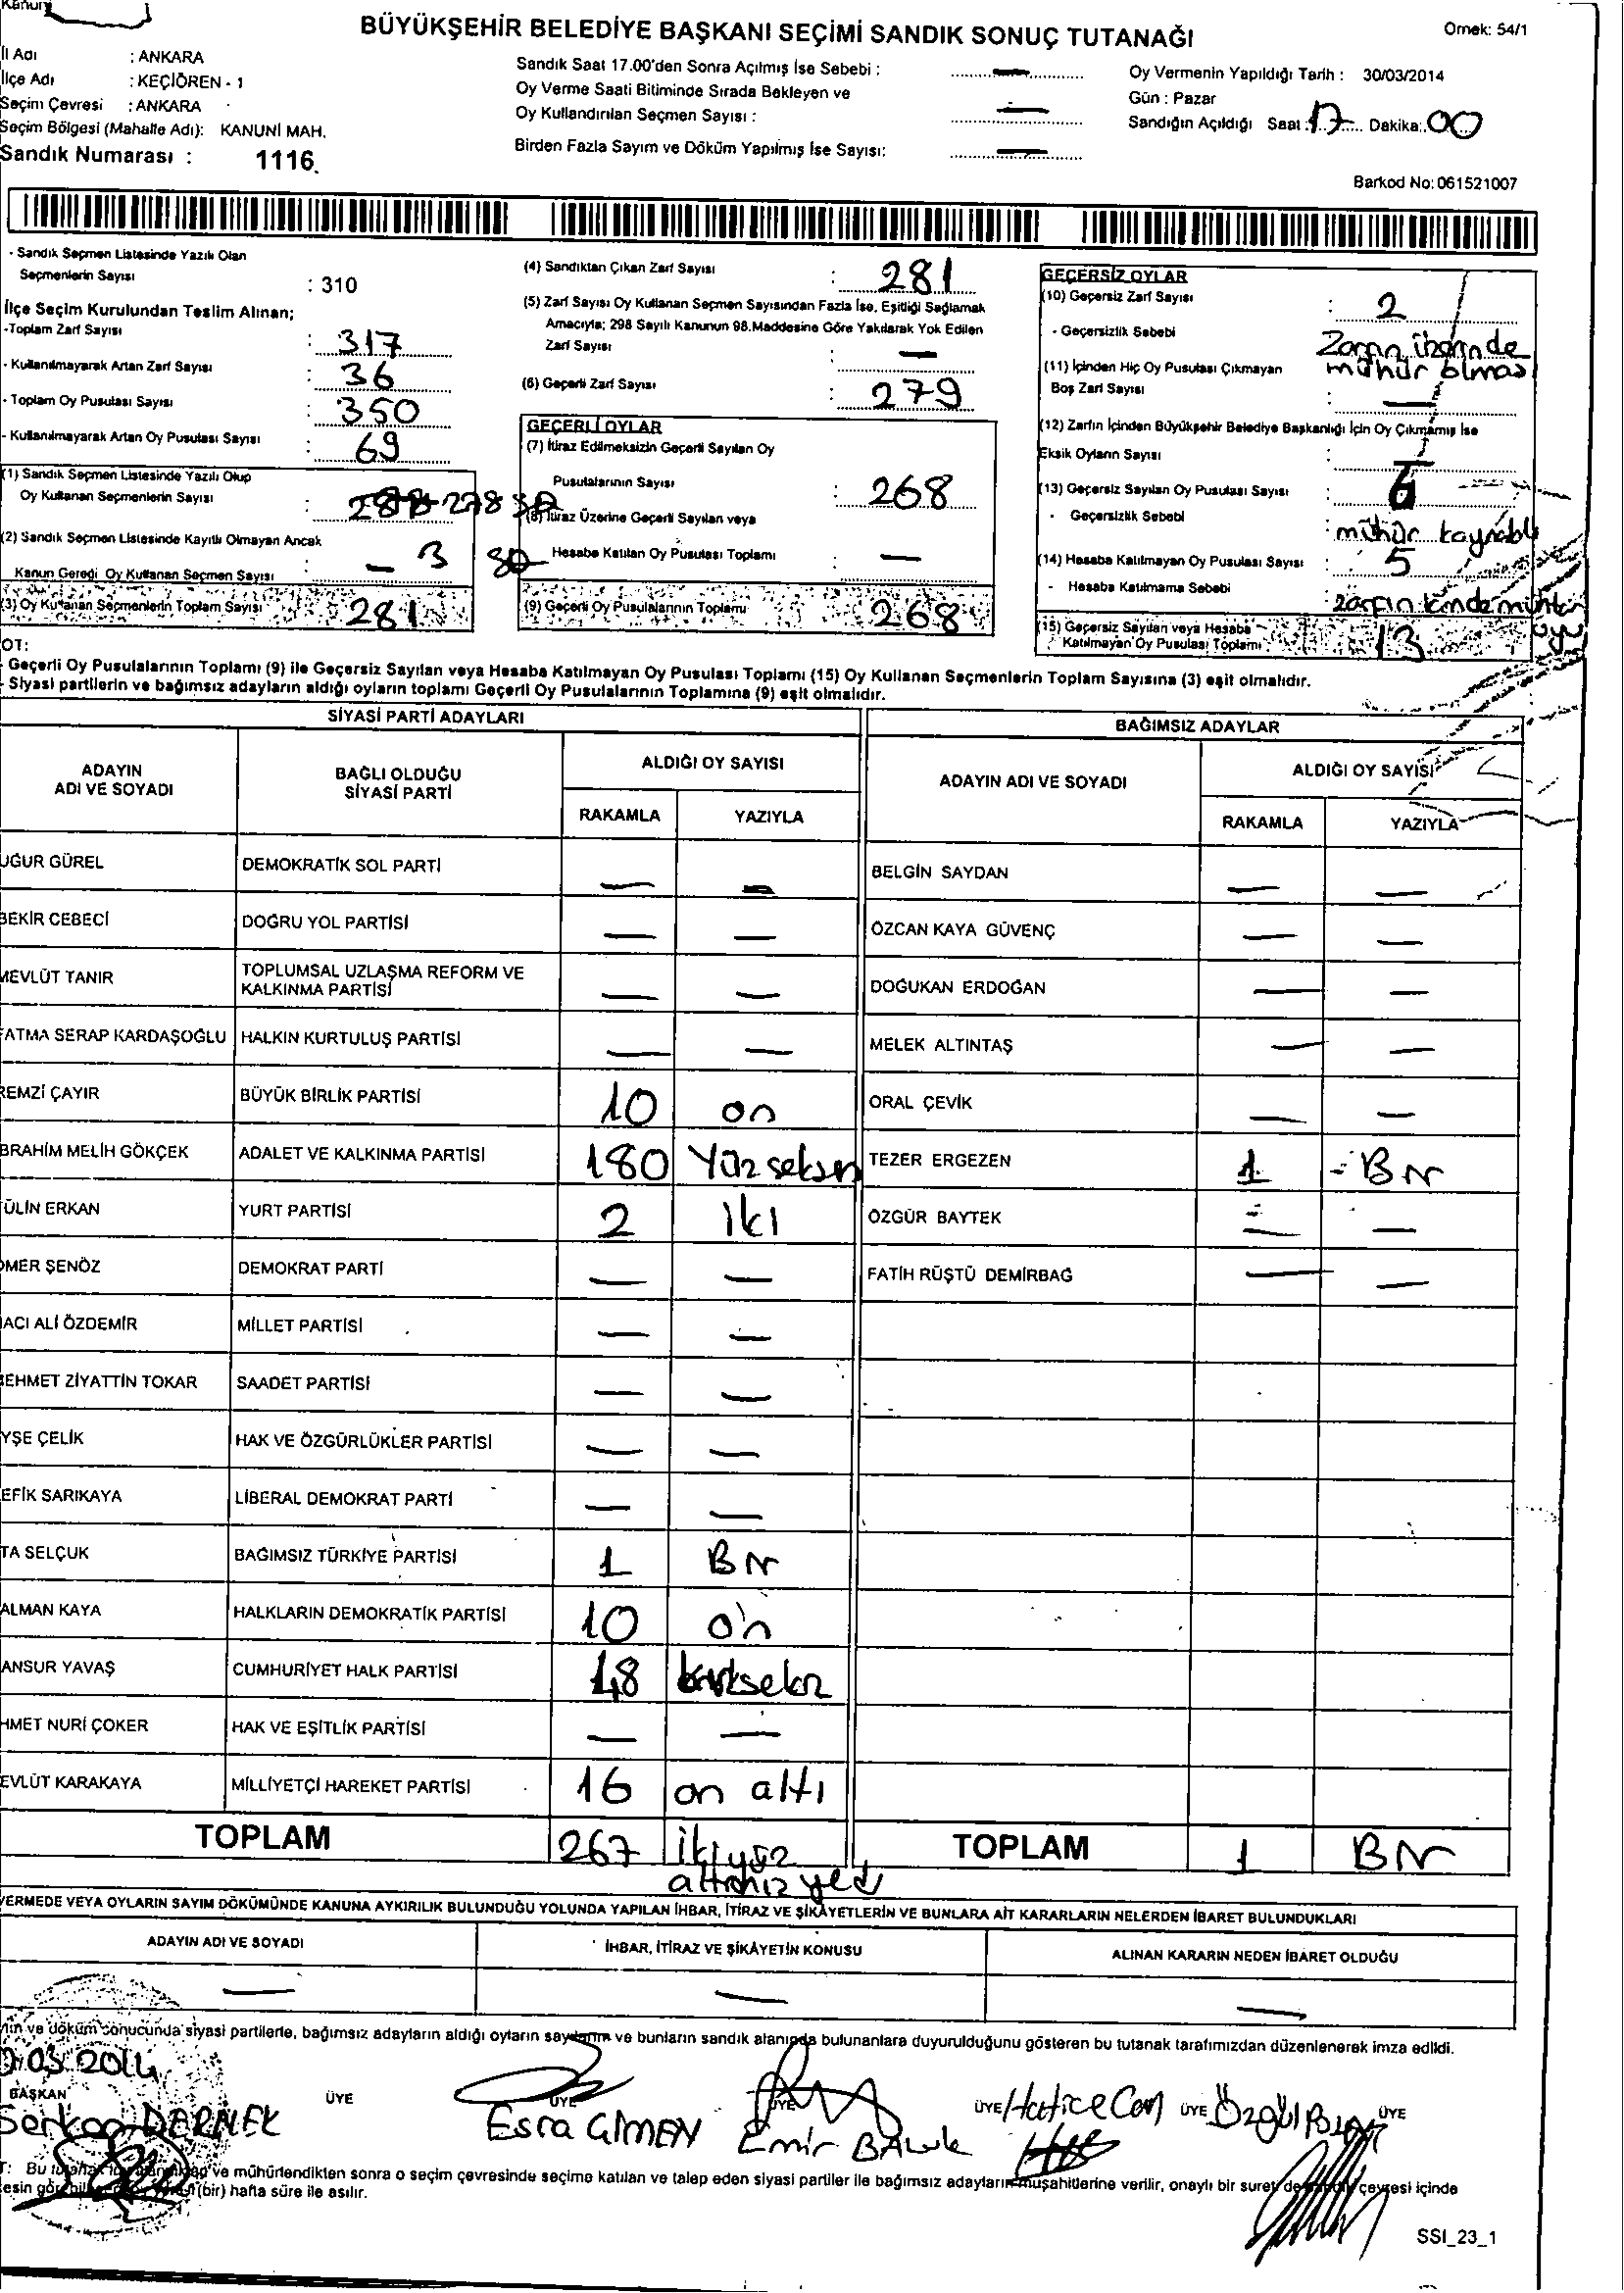 BÜYÜKŞEHİR BELEDİYE BAŞKANI SEÇİMİ SANDIK SONUÇ TUTANAĞI
Örnek: 54/1
İl Adı : ANKARA
İlçe Adı : KEÇİÖREN - 1
Seçim Çevresi : ANKARA
Seçim Bölgesi (Mahalle Adı): KANUNİ MAH.
Sandık Numarası : 1116
Sandık Saat 17.00'den Sonra Açılmış İse Sebebi : —
Oy Verme Saati Bitiminde Sırada Bekleyen ve
Oy Kullandırılan Seçmen Sayısı : —
Birden Fazla Sayım ve Döküm Yapılmış İse Sayısı: —
Oy Vermenin Yapıldığı Tarih : 30/03/2014
Gün : Pazar
Sandığın Açıldığı Saat : 17 Dakika: 00
Barkod No: 061521007
- Sandık Seçmen Listesinde Yazılı Olan
Seçmenlerin Sayısı : 310
İlçe Seçim Kurulundan Teslim Alınan;
-Toplam Zarf Sayısı : 317
- Kullanılmayarak Artan Zarf Sayısı : 36
- Toplam Oy Pusulası Sayısı : 350
- Kullanılmayarak Artan Oy Pusulası Sayısı : 69
(1) Sandık Seçmen Listesinde Yazılı Olup
Oy Kullanan Seçmenlerin Sayısı : 278
(2) Sandık Seçmen Listesinde Kayıtlı Olmayan Ancak
Kanun Gereği Oy Kullanan Seçmen Sayısı : — 3
(3) Oy Kullanan Seçmenlerin Toplam Sayısı : 281
(4) Sandıktan Çıkan Zarf Sayısı : 281
(5) Zarf Sayısı Oy Kullanan Seçmen Sayısından Fazla İse, Eşitliği Sağlamak
Amacıyla; 298 Sayılı Kanunun 98.Maddesine Göre Yakılarak Yok Edilen
Zarf Sayısı : —
(6) Geçerli Zarf Sayısı : 279
GEÇERLİ OYLAR
(7) İtiraz Edilmeksizin Geçerli Sayılan Oy
Pusulalarının Sayısı : 268
(8) İtiraz Üzerine Geçerli Sayılan veya
Hesaba Katılan Oy Pusulası Toplamı : —
(9) Geçerli Oy Pusulalarının Toplamı : 268
GEÇERSİZ OYLAR
(10) Geçersiz Zarf Sayısı : 2
- Geçersizlik Sebebi : Zarfın üzerinde
mühür olması
(11) İçinden Hiç Oy Pusulası Çıkmayan
Boş Zarf Sayısı : —
(12) Zarfın İçinden Büyükşehir Belediye Başkanlığı İçin Oy Çıkmamış İse
Eksik Oyların Sayısı : —
(13) Geçersiz Sayılan Oy Pusulası Sayısı : 6
- Geçersizlik Sebebi : mühür
(14) Hesaba Katılmayan Oy Pusulası Sayısı : 5
- Hesaba Katılmama Sebebi : zarfın
(15) Geçersiz Sayılan veya Hesaba
Katılmayan Oy Pusulası Toplamı : 13
OT:
Geçerli Oy Pusulalarının Toplamı (9) ile Geçersiz Sayılan veya Hesaba Katılmayan Oy Pusulası Toplamı (15) Oy Kullanan Seçmenlerin Toplam Sayısına (3) eşit olmalıdır.
- Siyasi partilerin ve bağımsız adayların aldığı oyların toplamı Geçerli Oy Pusulalarının Toplamına (9) eşit olmalıdır.
SİYASİ PARTİ ADAYLARI
BAĞIMSIZ ADAYLAR
ADAYIN ADI VE SOYADI
BAĞLI OLDUĞU SİYASİ PARTİ
ALDIĞI OY SAYISI
RAKAMLA YAZIYLA
ADAYIN ADI VE SOYADI
ALDIĞI OY SAYISI
RAKAMLA YAZIYLA
UĞUR GÜREL DEMOKRATİK SOL PARTİ — — BELGİN SAYDAN — —
BEKİR CEBECİ DOĞRU YOL PARTİSİ — — ÖZCAN KAYA GÜVENÇ — —
MEVLÜT TANIR TOPLUMSAL UZLAŞMA REFORM VE KALKINMA PARTİSİ — — DOĞUKAN ERDOĞAN — —
FATMA SERAP KARDAŞOĞLU HALKIN KURTULUŞ PARTİSİ — — MELEK ALTINTAŞ — —
REMZİ ÇAYIR BÜYÜK BİRLİK PARTİSİ 10 on ORAL ÇEVİK — —
BRAHİM MELİH GÖKÇEK ADALET VE KALKINMA PARTİSİ 180 Yüz seksen TEZER ERGEZEN 1 Bir
ÜLİN ERKAN YURT PARTİSİ 2 iki ÖZGÜR BAYTEK — —
ÖMER ŞENÖZ DEMOKRAT PARTİ — — FATİH RÜŞTÜ DEMİRBAĞ — —
ACI ALİ ÖZDEMİR MİLLET PARTİSİ — —
EHMET ZİYATTİN TOKAR SAADET PARTİSİ — —
YŞE ÇELİK HAK VE ÖZGÜRLÜKLER PARTİSİ — —
EFİK SARIKAYA LİBERAL DEMOKRAT PARTİ — —
TA SELÇUK BAĞIMSIZ TÜRKİYE PARTİSİ 1 Bir
ALMAN KAYA HALKLARIN DEMOKRATİK PARTİSİ 10 on
ANSUR YAVAŞ CUMHURİYET HALK PARTİSİ 48 kırksekiz
HMET NURİ ÇOKER HAK VE EŞİTLİK PARTİSİ — —
EVLÜT KARAKAYA MİLLİYETÇİ HAREKET PARTİSİ 16 on altı
TOPLAM 267 ikiyüz altmışyedi TOPLAM 1 Bir
VERMEDE VEYA OYLARIN SAYIM DÖKÜMÜNDE KANUNA AYKIRILIK BULUNDUĞU YOLUNDA YAPILAN İHBAR, İTİRAZ VE ŞİKÂYETLERİN VE BUNLARA AİT KARARLARIN NELERDEN İBARET BULUNDUKLARI
ADAYIN ADI VE SOYADI İHBAR, İTİRAZ VE ŞİKÂYETİN KONUSU ALINAN KARARIN NEDEN İBARET OLDUĞU
— — —
yım ve döküm sonucunda siyasi partilerle, bağımsız adayların aldığı oyların sayılarını ve bunların sandık alanında bulunanlara duyurulduğunu gösteren bu tutanak tarafımızdan düzenlenerek imza edildi.
03.2014
BAŞKAN ÜYE ÜYE ÜYE ÜYE ÜYE ÜYE
Serkan DERNEK Esra GİMEN Emir BALIK Hatice Can Özgül
T: Bu ve mühürlendikten sonra o seçim çevresinde seçime katılan ve talep eden siyasi partiler ile bağımsız adayların müşahitlerine verilir, onaylı bir sureti de çevresi içinde
(bir) hafta süre ile asılır.
SSI_23_1